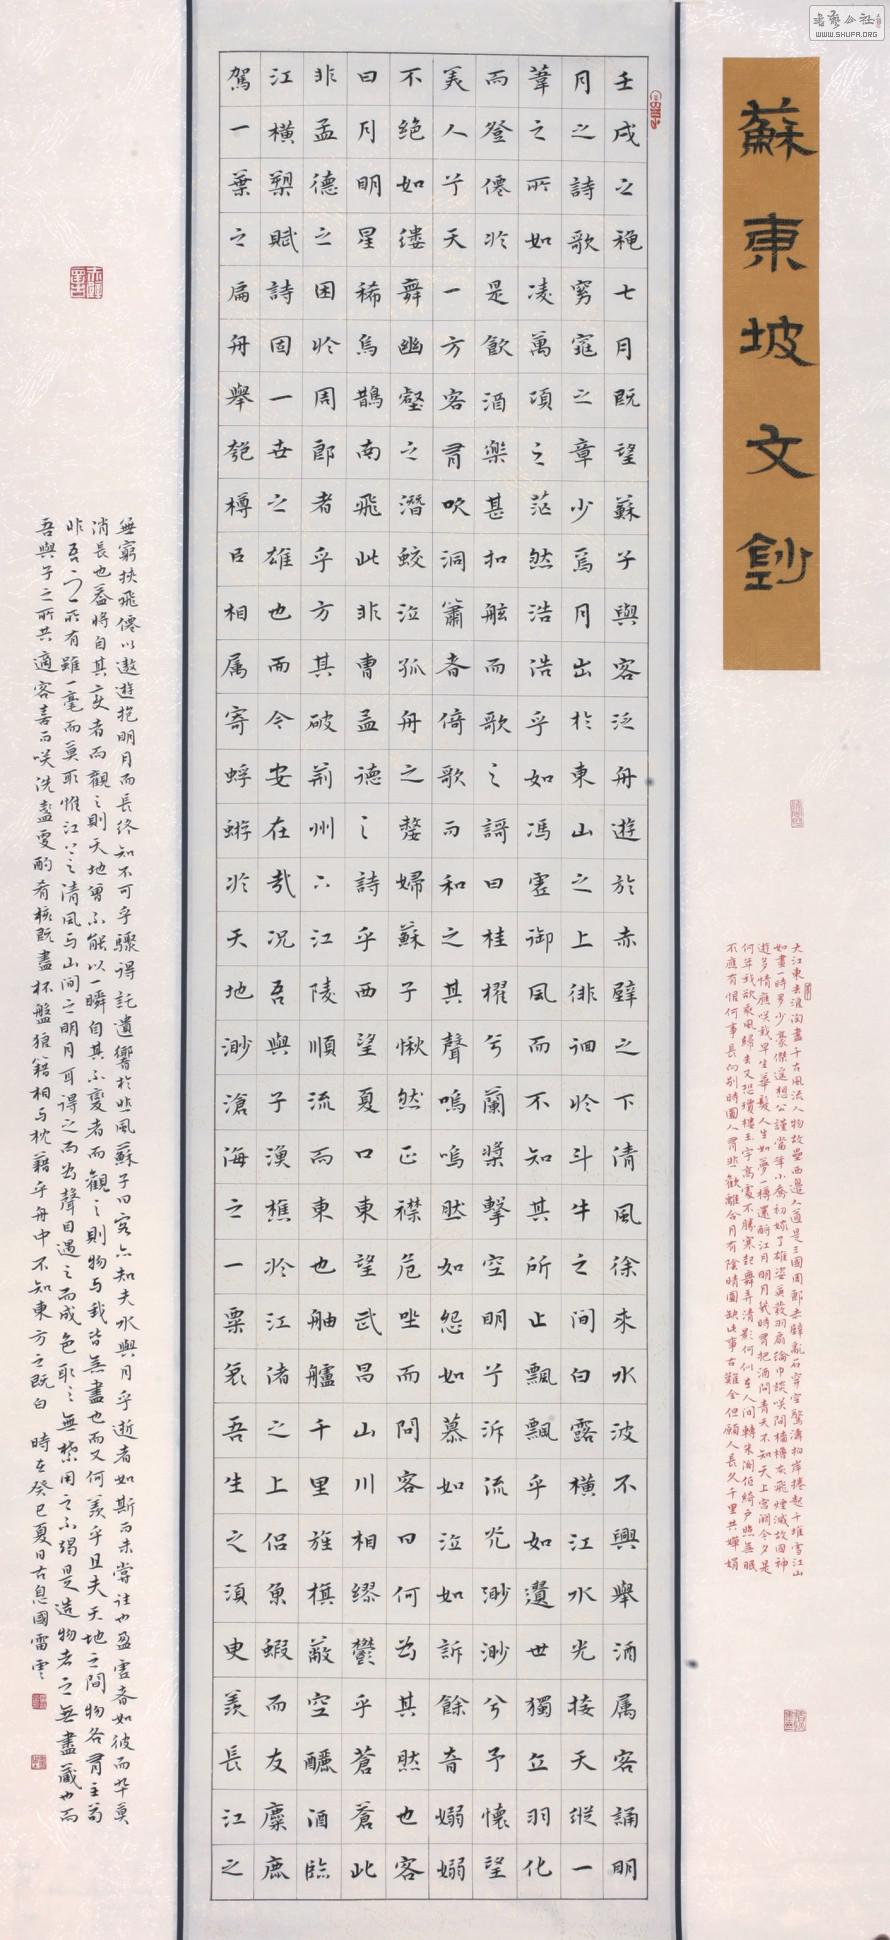 蘇東坡文鈔
大江東去浪淘盡千古風流人物故壘西邊人道是三國周郎赤壁亂石穿空驚濤拍岸捲起千堆雪江山
如畫一時多少豪傑遙想公謹當年小喬初嫁了雄姿英發羽扇綸巾談笑間檣櫓灰飛煙滅故國神
遊多情應笑我早生華髮人生如夢一樽還酹江月明月幾時有把酒問青天不知天上宮闕今夕是
何年我欲乘風歸去又恐瓊樓玉宇高處不勝寒起舞弄清影何似在人間轉朱閣低綺戶照無眠
不應有恨何事長向別時圓人有悲歡離合月有陰晴圓缺此事古難全但願人長久千里共嬋娟
壬戌之秋七月既望蘇子與客泛舟遊於赤壁之下清風徐來水波不興舉酒属客誦明
月之詩歌窈窕之章少焉月出於東山之上徘徊於斗牛之間白露橫江水光接天縱一
葦之所如凌萬頃之茫然浩浩乎如馮虛御風而不知其所止飄飄乎如遺世獨立羽化
而登僊於是飲酒樂甚扣舷而歌之謌曰桂櫂兮蘭槳擊空明兮泝流光渺渺兮予懷望
美人兮天一方客有吹洞簫者倚歌而和之其聲嗚嗚然如怨如慕如泣如訴餘音嫋嫋
不絕如縷舞幽壑之潛蛟泣孤舟之嫠婦蘇子愀然正襟危坐而問客曰何為其然也客
曰月明星稀烏鵲南飛此非曹孟德之詩乎西望夏口東望武昌山川相繆鬱乎蒼蒼此
非孟德之困於周郎者乎方其破荊州下江陵順流而東也舳艫千里旌旗蔽空釃酒臨
江橫槊賦詩固一世之雄也而今安在哉況吾與子漁樵於江渚之上侶魚蝦而友麋鹿
駕一葉之扁舟舉匏樽以相属寄蜉蝣於天地渺滄海之一粟哀吾生之須臾羨長江之
無窮挾飛僊以遨遊抱明月而長終知不可乎驟得託遺響於悲風蘇子曰客亦知夫水與月乎逝者如斯而未嘗往也盈虛者如彼而卒莫
消長也蓋將自其變者而觀之則天地曾不能以一瞬自其不變者而觀之則物与我皆無盡也而又何羨乎且夫天地之間物各有主苟
非吾之所有雖一毫而莫取惟江上之清風与山間之明月耳得之而為聲目遇之而成色取之無禁用之不竭是造物者之無盡藏也而
吾與子之所共適客喜而笑洗盞更酌肴核既盡杯盤狼籍相与枕藉乎舟中不知東方之既白 時在癸巳夏日古息國雷雲
WWW.SHUFA.ORG